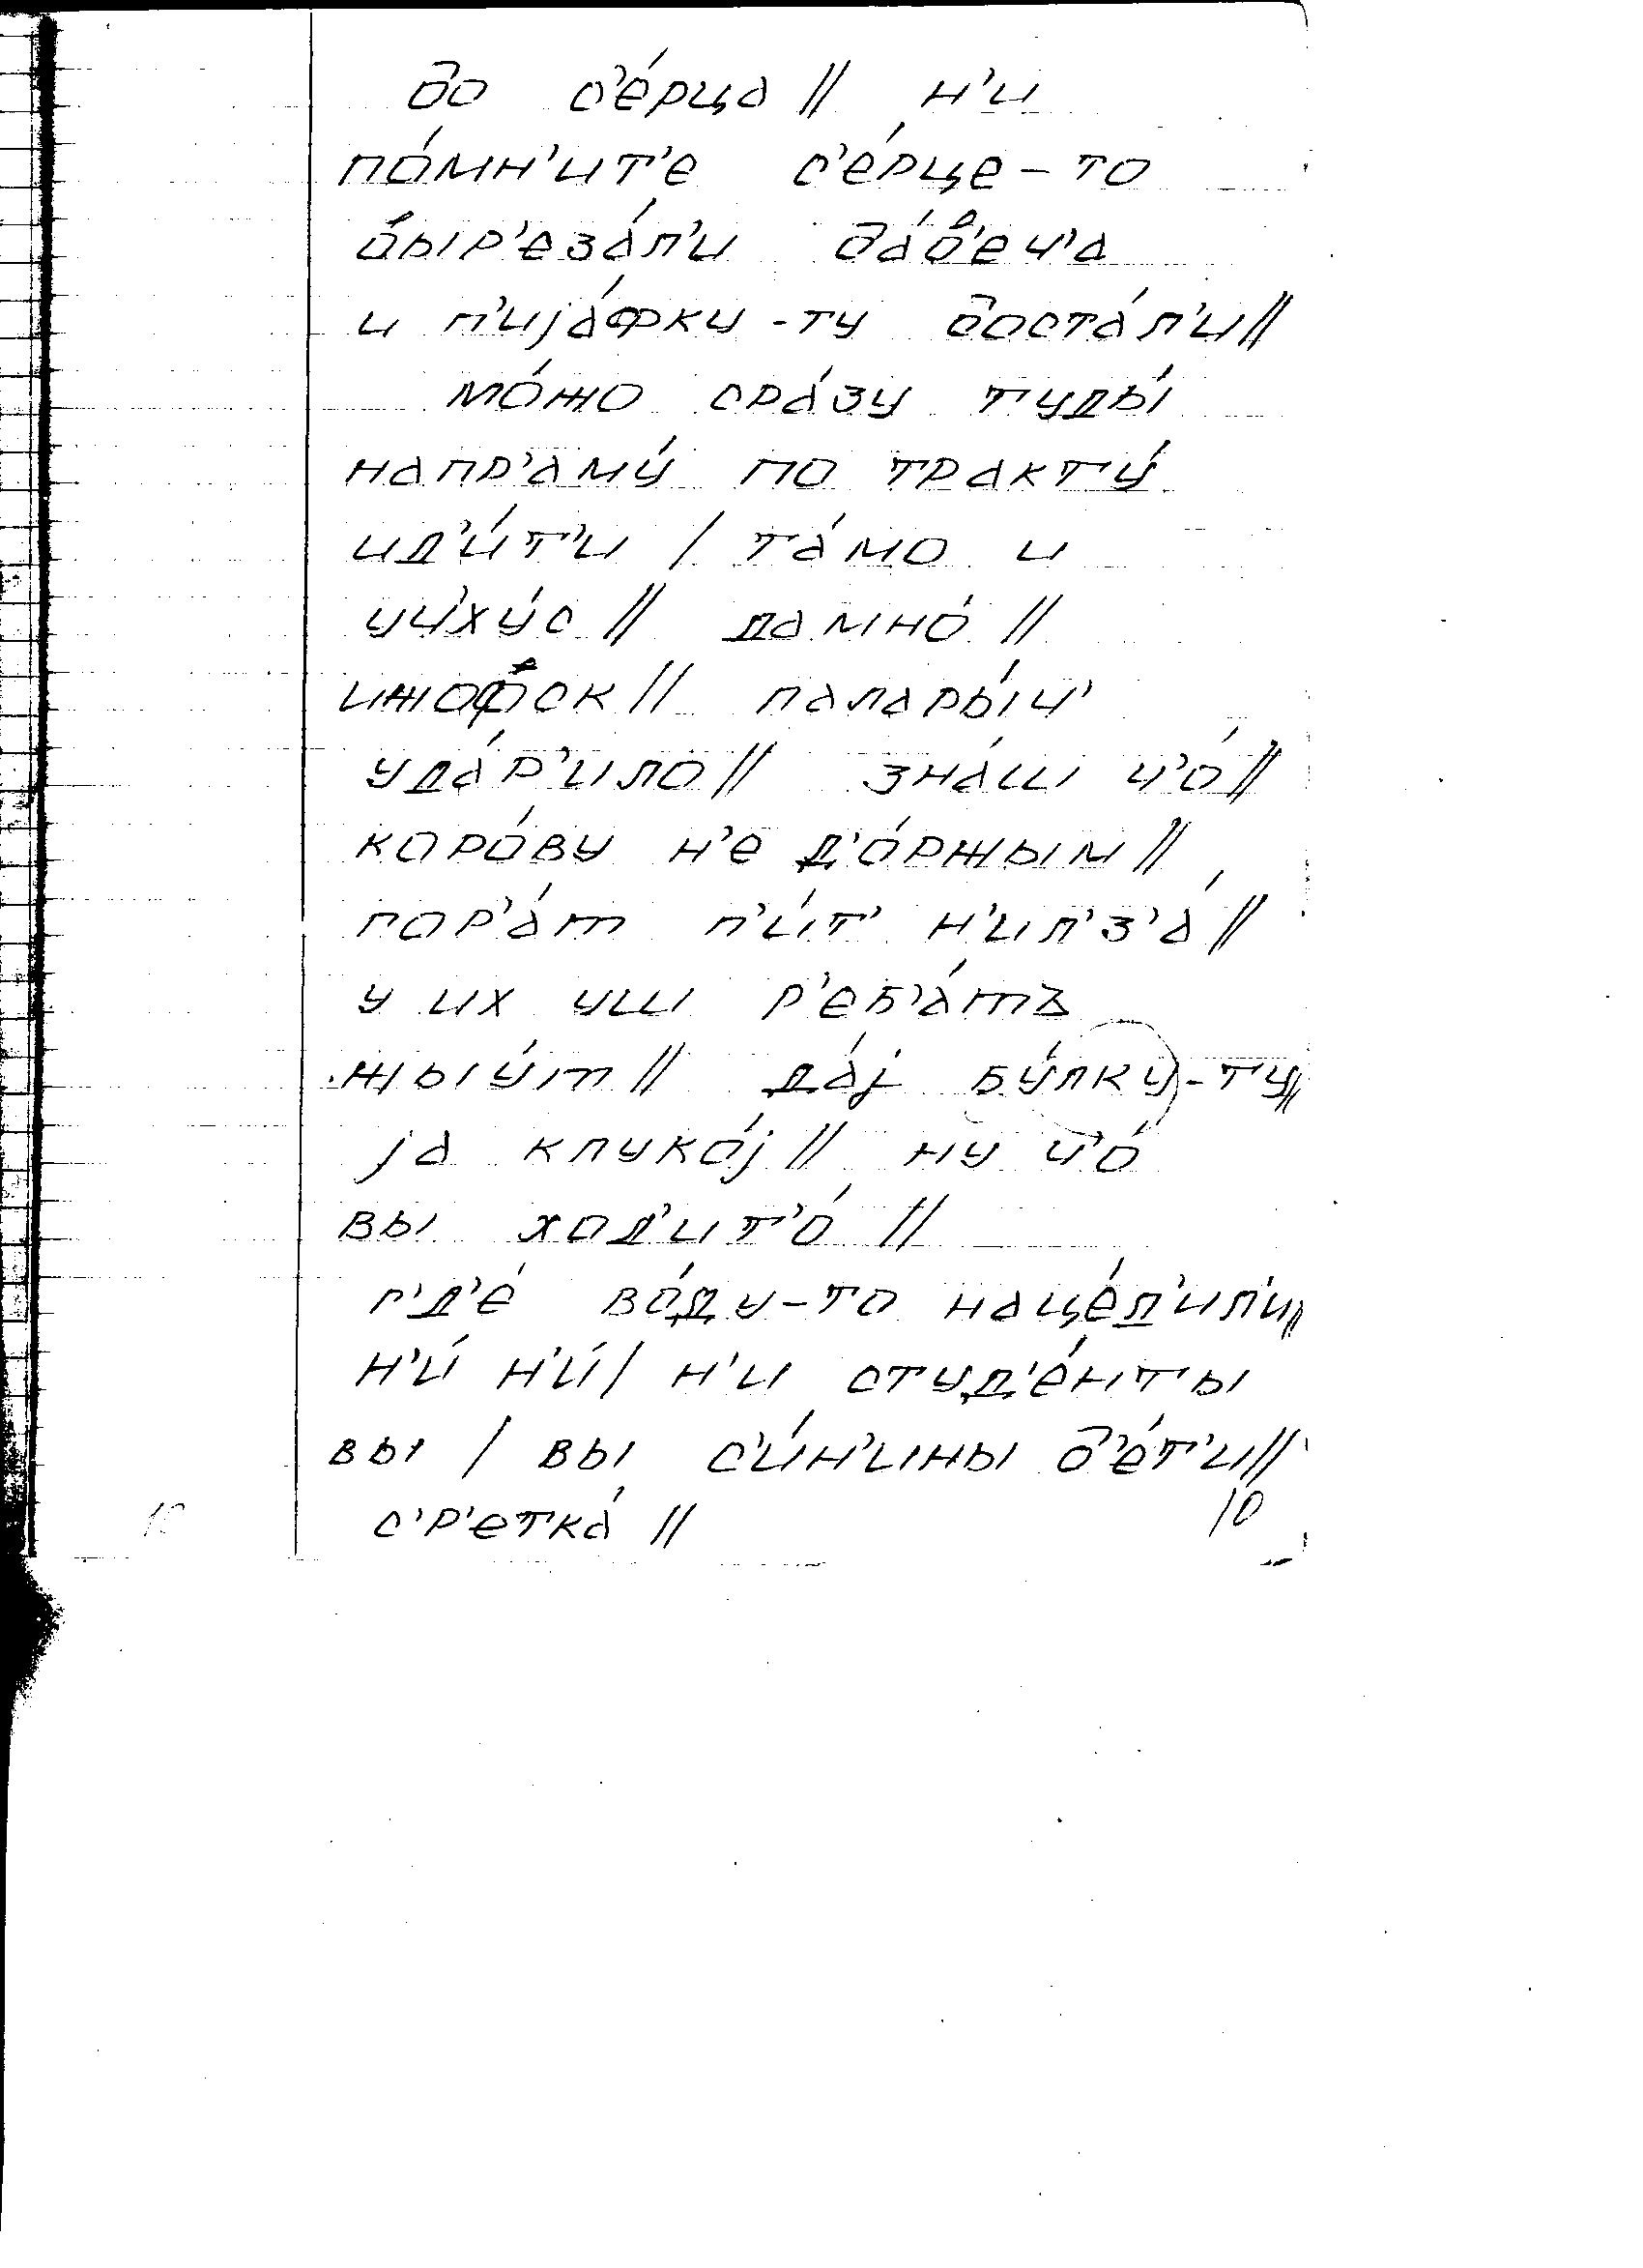 до с'е́рца // н'и
по́мн'ит'е с'е́рце-то
выр'еза́л'и да́в'еч'а
и п'иjа́фки-ту доста́л'и //
мо́жо сра́зу туды́
напр'аму́ по тракту́
ид'и́т'и / та́мо и
уч'ху́с // дамно́ //
ижофск // палары́ч'
уда́р'ило // зна́ш ч'о́ //
коро́ву н'е д'о́ржым //
гор'а́т п'и́т' н'ил'з'а́ //
у их уш р'еб'а́тъ
жыу́т // да́j бу́лку-ту //
jа клуко́j // ну ч'о́
вы ход'ит'о́ //
г'д'е́ во́ду-то нацэ́д'ил'и //
н'и́ н'и́ / н'и студ'е́нты
вы / вы с'и́н'ины д'е́т'и //
с'р'етка́ //
10